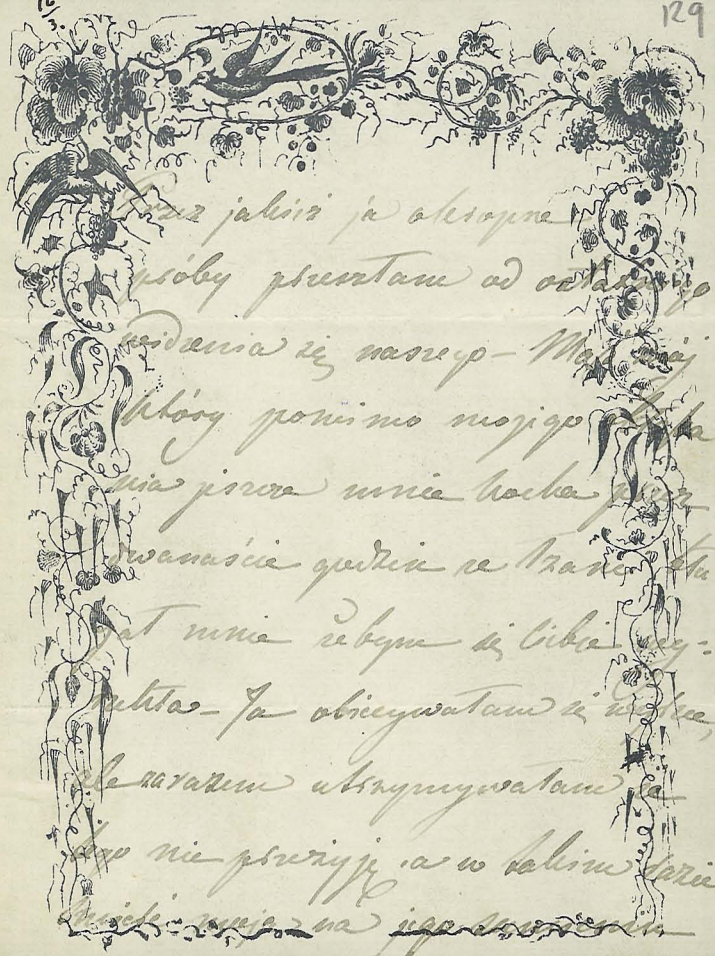 12/3.
129
Przez jakież ja okropne
próby przeszłam od ostatniego
widzenia się naszego – Mąż mój
który pomimo mojego
nia jeszcze mnie kocha przez
dwanaście godzin ze łzami bła
gał mnie żebym się Ciebie wy-
rzekła – Ja obiecywałam
ale zarazem utrzymywałam że
tego nie przeżyję, a w takim razie
śmierć moja na jego sumieniu